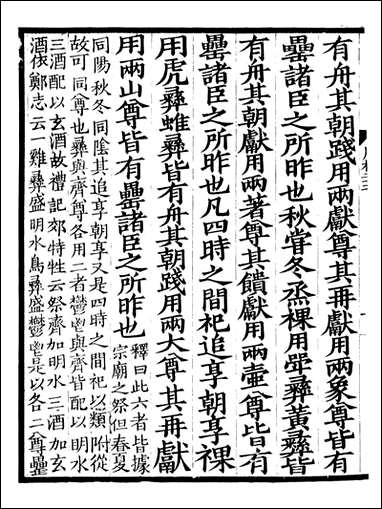 有舟其朝踐用兩獻尊其再獻用兩象尊皆有
罍諸臣之所昨也秋嘗冬烝祼用斝彝黃彝皆
有舟其朝獻用兩著尊其饋獻用兩壷尊皆有
罍諸臣之所昨也凡四時之間祀追享朝享祼
用虎彝蜼彝皆有舟其朝踐用兩大尊其再獻
用兩山尊皆有罍諸臣之所昨也
釋曰此六者皆據
宗廟之祭但春夏
同陽秋冬同陰其追享朝享又是四時之間祀以類附從
故可同尊也彝與齊尊各用二者鬱鬯與齊皆配以明水
三酒配以玄酒故禮記郊特牲云祭齊加明水三酒加玄
酒依鄭志云一雞彝盛明水鳥彝盛鬱鬯是以各二尊罍